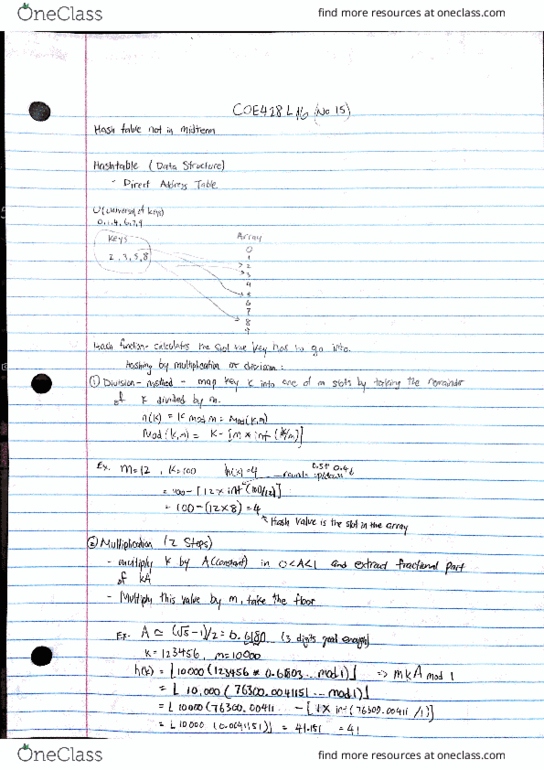 OneClass
find more resources at oneclass.com
COE428 L16 (Nov 15)
Hash table not in midterm
Hashtable (Data Structure)
- Direct Address Table
U (universe of keys)
0,1,4,6,7,9
Keys
Array
2,3,5,8
0
1
2
3
4
5
6
7
8
9
Hash function - calculates the slot the key has to go into.
Hashing by multiplication or division:
① Division-method - map key K into one of m slots by taking the remainder
of K divided by m.
h(K) = K mod m = Mod(K,m)
Mod(K,m) = K - [m × int (K/m)]
Ex. m=12, K=100 h(K)=4
= 100 - [12 × int (100/12)]
= 100 - (12×8) = 4
Hash value is the slot in the array
② Multiplication (2 Steps)
- multiply K by A(constant) in 0<A<1 and extract fractional part
of KA
- Multiply this value by m, take the floor
Ex. A ≃ (√5-1)/2 = 0.6180 (3 digits good enough)
K = 123456, m=10000
h(K) = ⌊10000(123456 * 0.61803... mod 1)⌋ => m K A mod 1
= ⌊10,000 (76300.0041151... mod 1)⌋
= ⌊10000(76300.00411... - [1 × int (76300.00411 /1)]
= ⌊10000 (0.0041151)⌋ = 41.151 = 41
OneClass
find more resources at oneclass.com